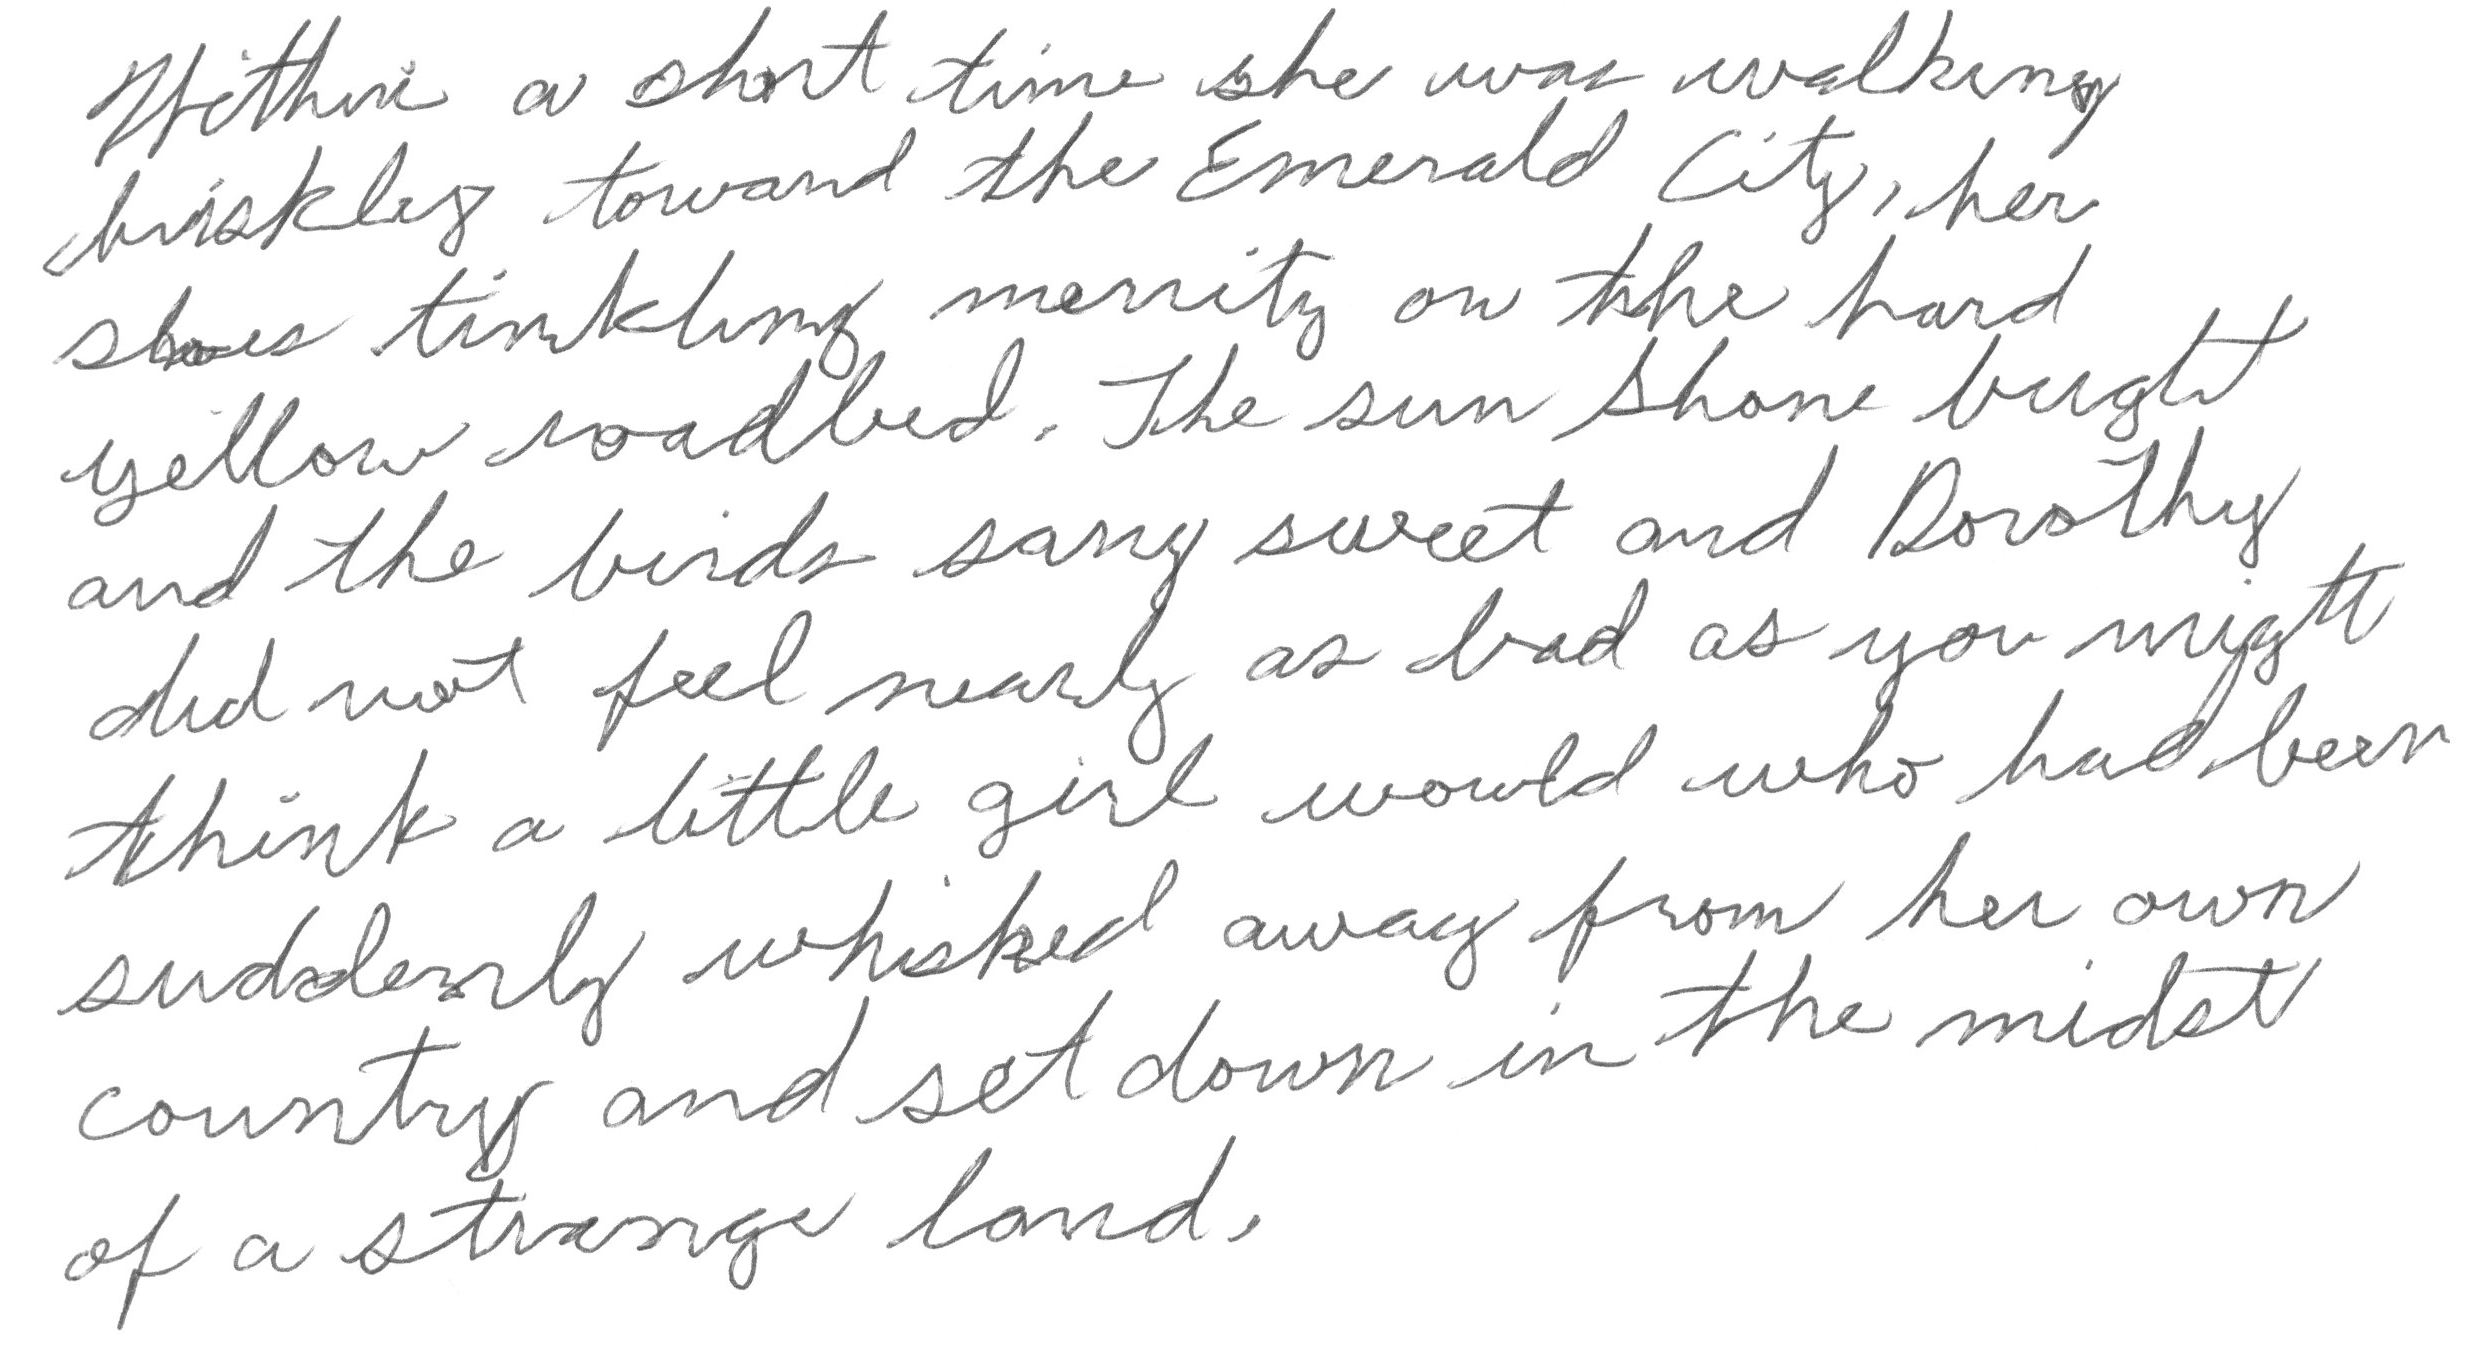 Within a short time she was walking
briskley toward the Emerald City, her
shoes tinkling merrity on the hard
yellow roadbed. The sun shone bright
and the birds sang sweet and Dorothy
did not feel nearly as bad as you might
think a little girl would who had been
suddenly whisked away from her own
country and set down in the midst
of a strange land.